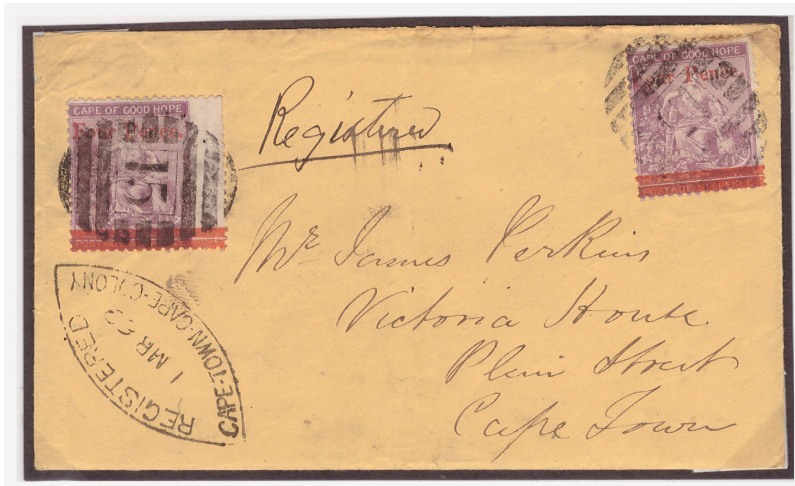 CAPE OF GOOD HOPE
Four Pence.
15
CAPE OF GOOD HOPE
Four Pence.
Registered
Mr James Perkins
Victoria House
Plein Street
Cape Town
REGISTERED
1 MR
CAPE-TOWN-CAPE-COLONY